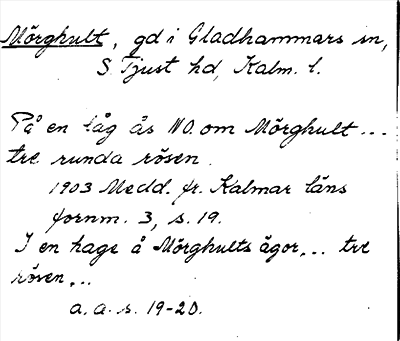 Mörghult, gd i Gladhammars sn,
S. Tjust hd, Kalm. l.
På en låg ås NO. om Mörghult...
tre runda rösen.
1903 Medd. fr. Kalmar läns
fornm. 3, s. 19.
I en hage å Mörghults ägor... tre
rösen...
a. a. s. 19-20.